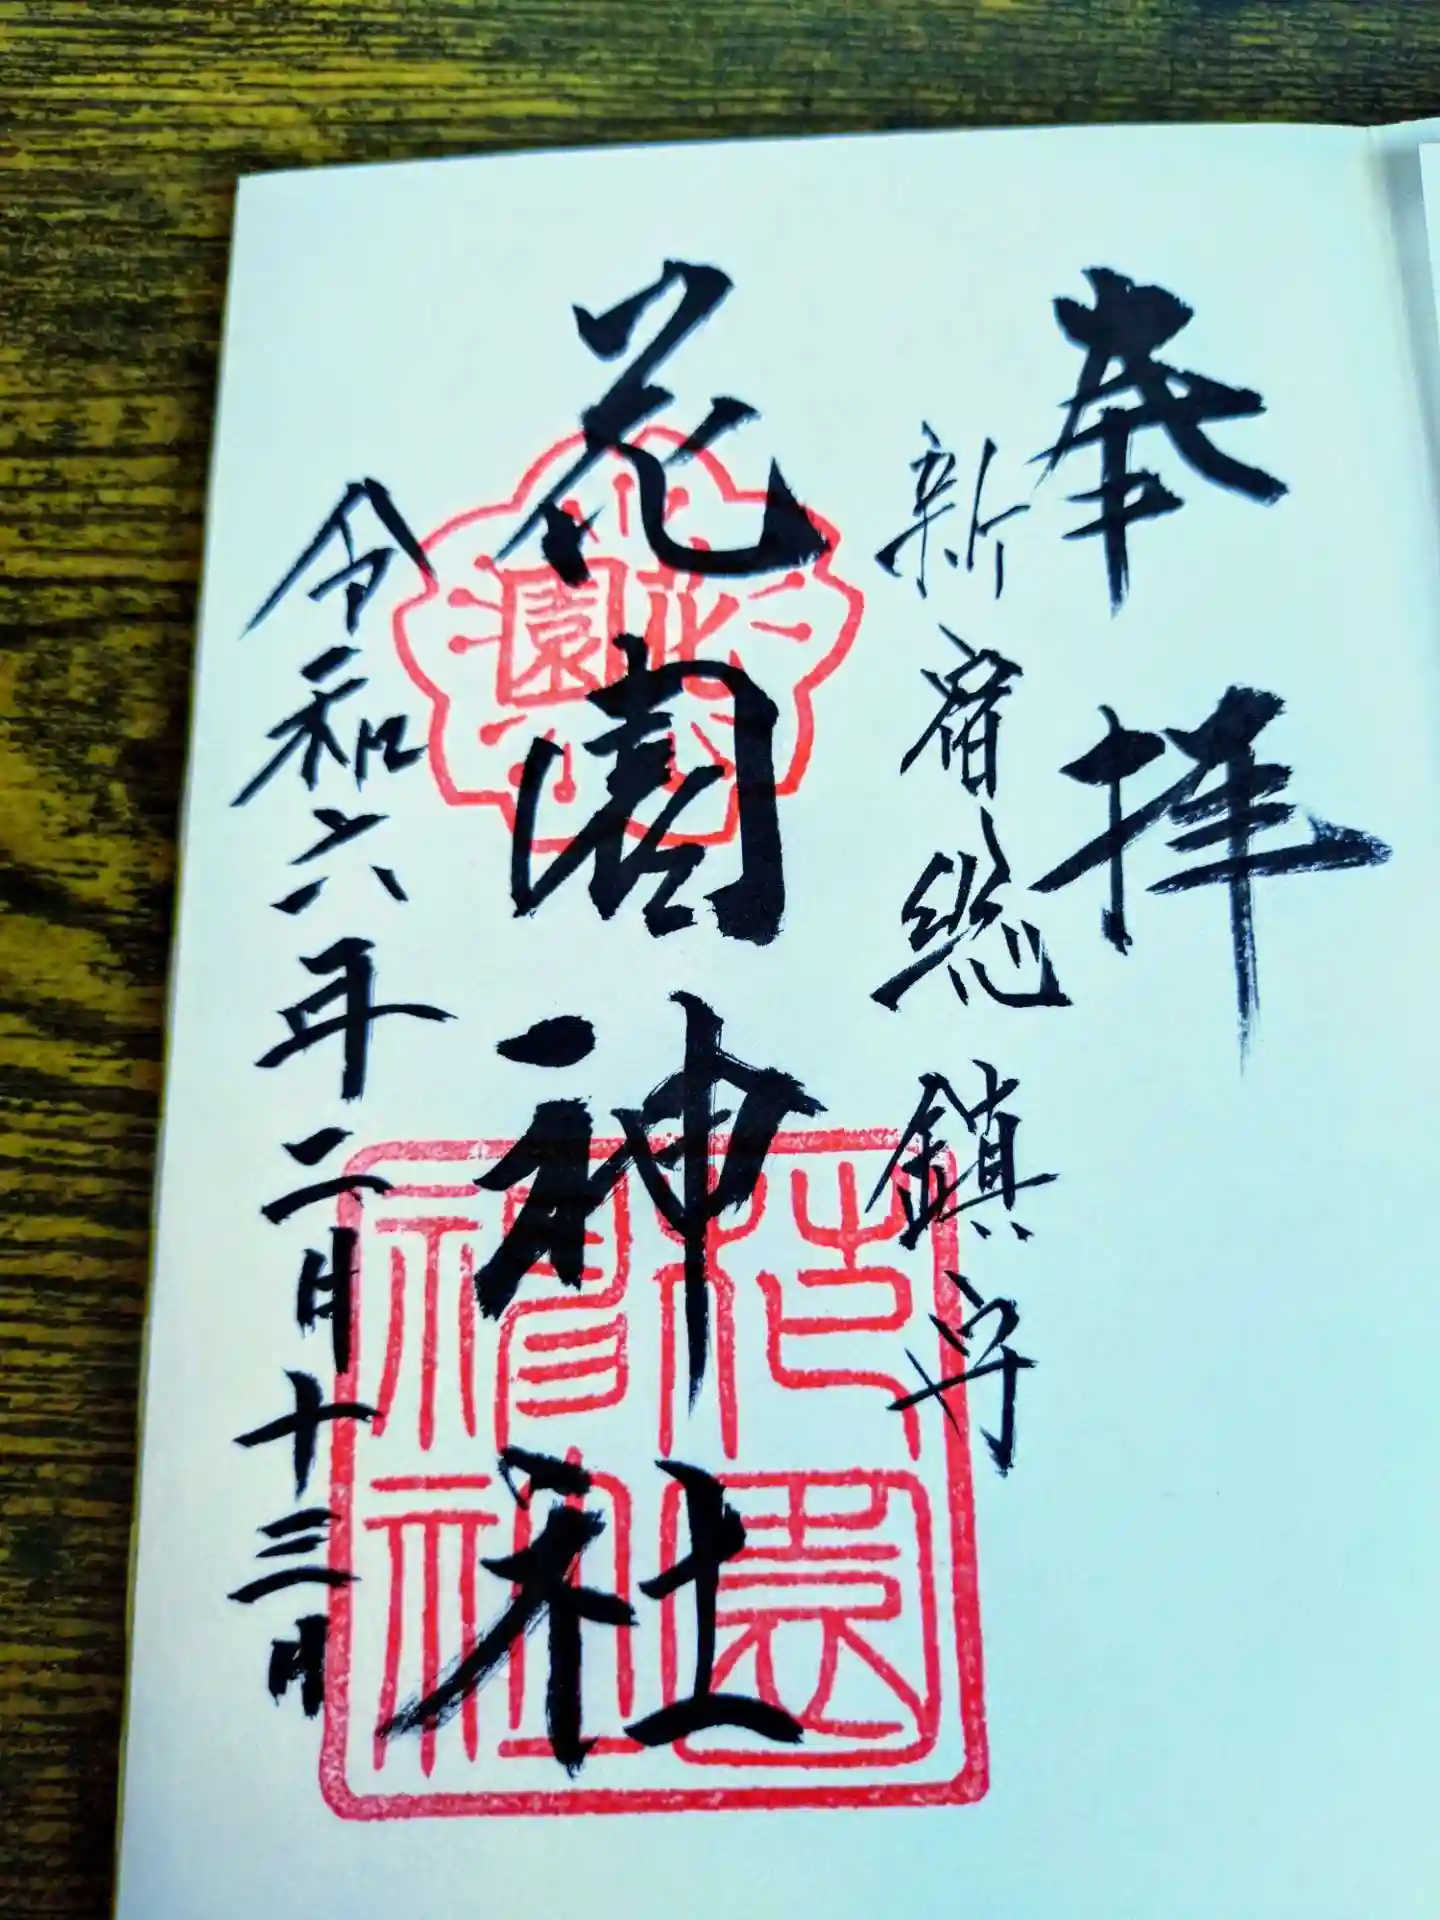 奉拝
新宿総鎮守
花園神社
令和六年二月十三日
花園
花園
神社